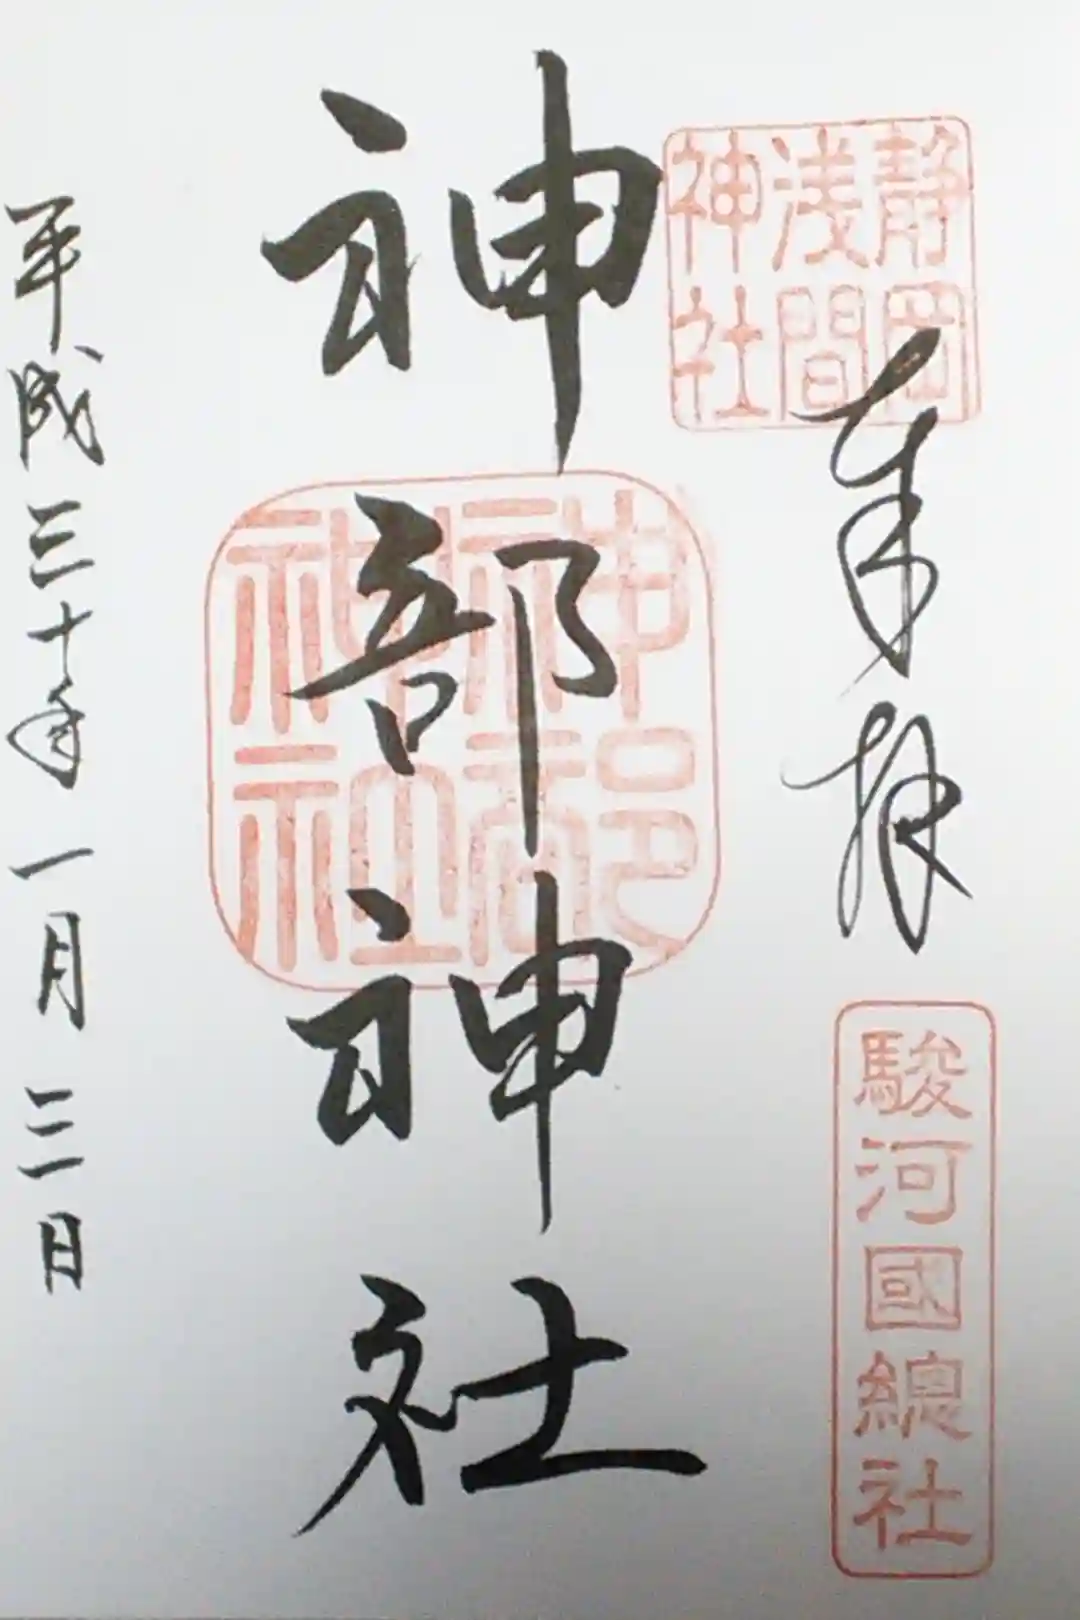 奉拝
静岡
浅間
神社
駿河國總社
神部神社
神部
神社
平成三十年一月三日